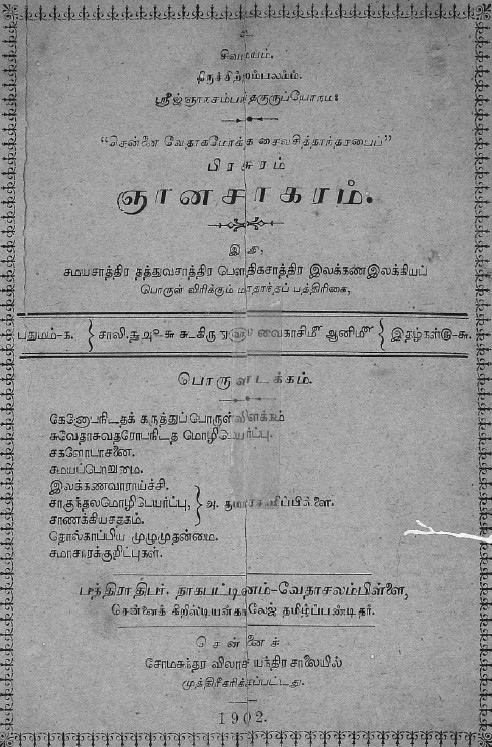 உ
சிவமயம்.
திருச்சிற்றம்பலம்.
ஸ்ரீஞாநசம்பந்தகுருப்யோநம:
“சென்னை வேதாகமோக்த சைவசித்தாந்தசபைப்”
பிரசுரம்
ஞானசாகரம்.
இஃது,
சமயசாத்திர தத்துவசாத்திர பௌதிகசாத்திர இலக்கணஇலக்கியப்
பொருள் விரிக்கும் மாதாந்தப் பத்திரிகை,
பதுமம்-க. வைகாசிமீ ஆனிமீ இதழ்கள்௫-௬.
பொருளடக்கம்.
கேனோபநிடதக் கருத்துப்பொருள்விளக்கம்
சுவேதாசுவதரோபநிடத மொழிபெயர்ப்பு.
சகளோபாசனை.
சமயப்பொறுமை.
இலக்கணவாராய்ச்சி.
சாகுந்தலமொழிபெயர்ப்பு, } அ. குமாரசாமிப்பிள்ளை.
சாணக்கியசதகம்.
தொல்காப்பிய முழுமுதன்மை.
சமாசாரக்குறிப்புகள்.
பத்திராதிபர். நாகபட்டினம்-வேதாசலம்பிள்ளை,
சென்னைக் கிறிஸ்டியன்காலேஜ் தமிழ்ப்பண்டிதர்.
சென்னைச்
சோமசுந்தர விலாச யந்திர சாலையில்
முத்திரீகரிக்கப்பட்டது.
1902.